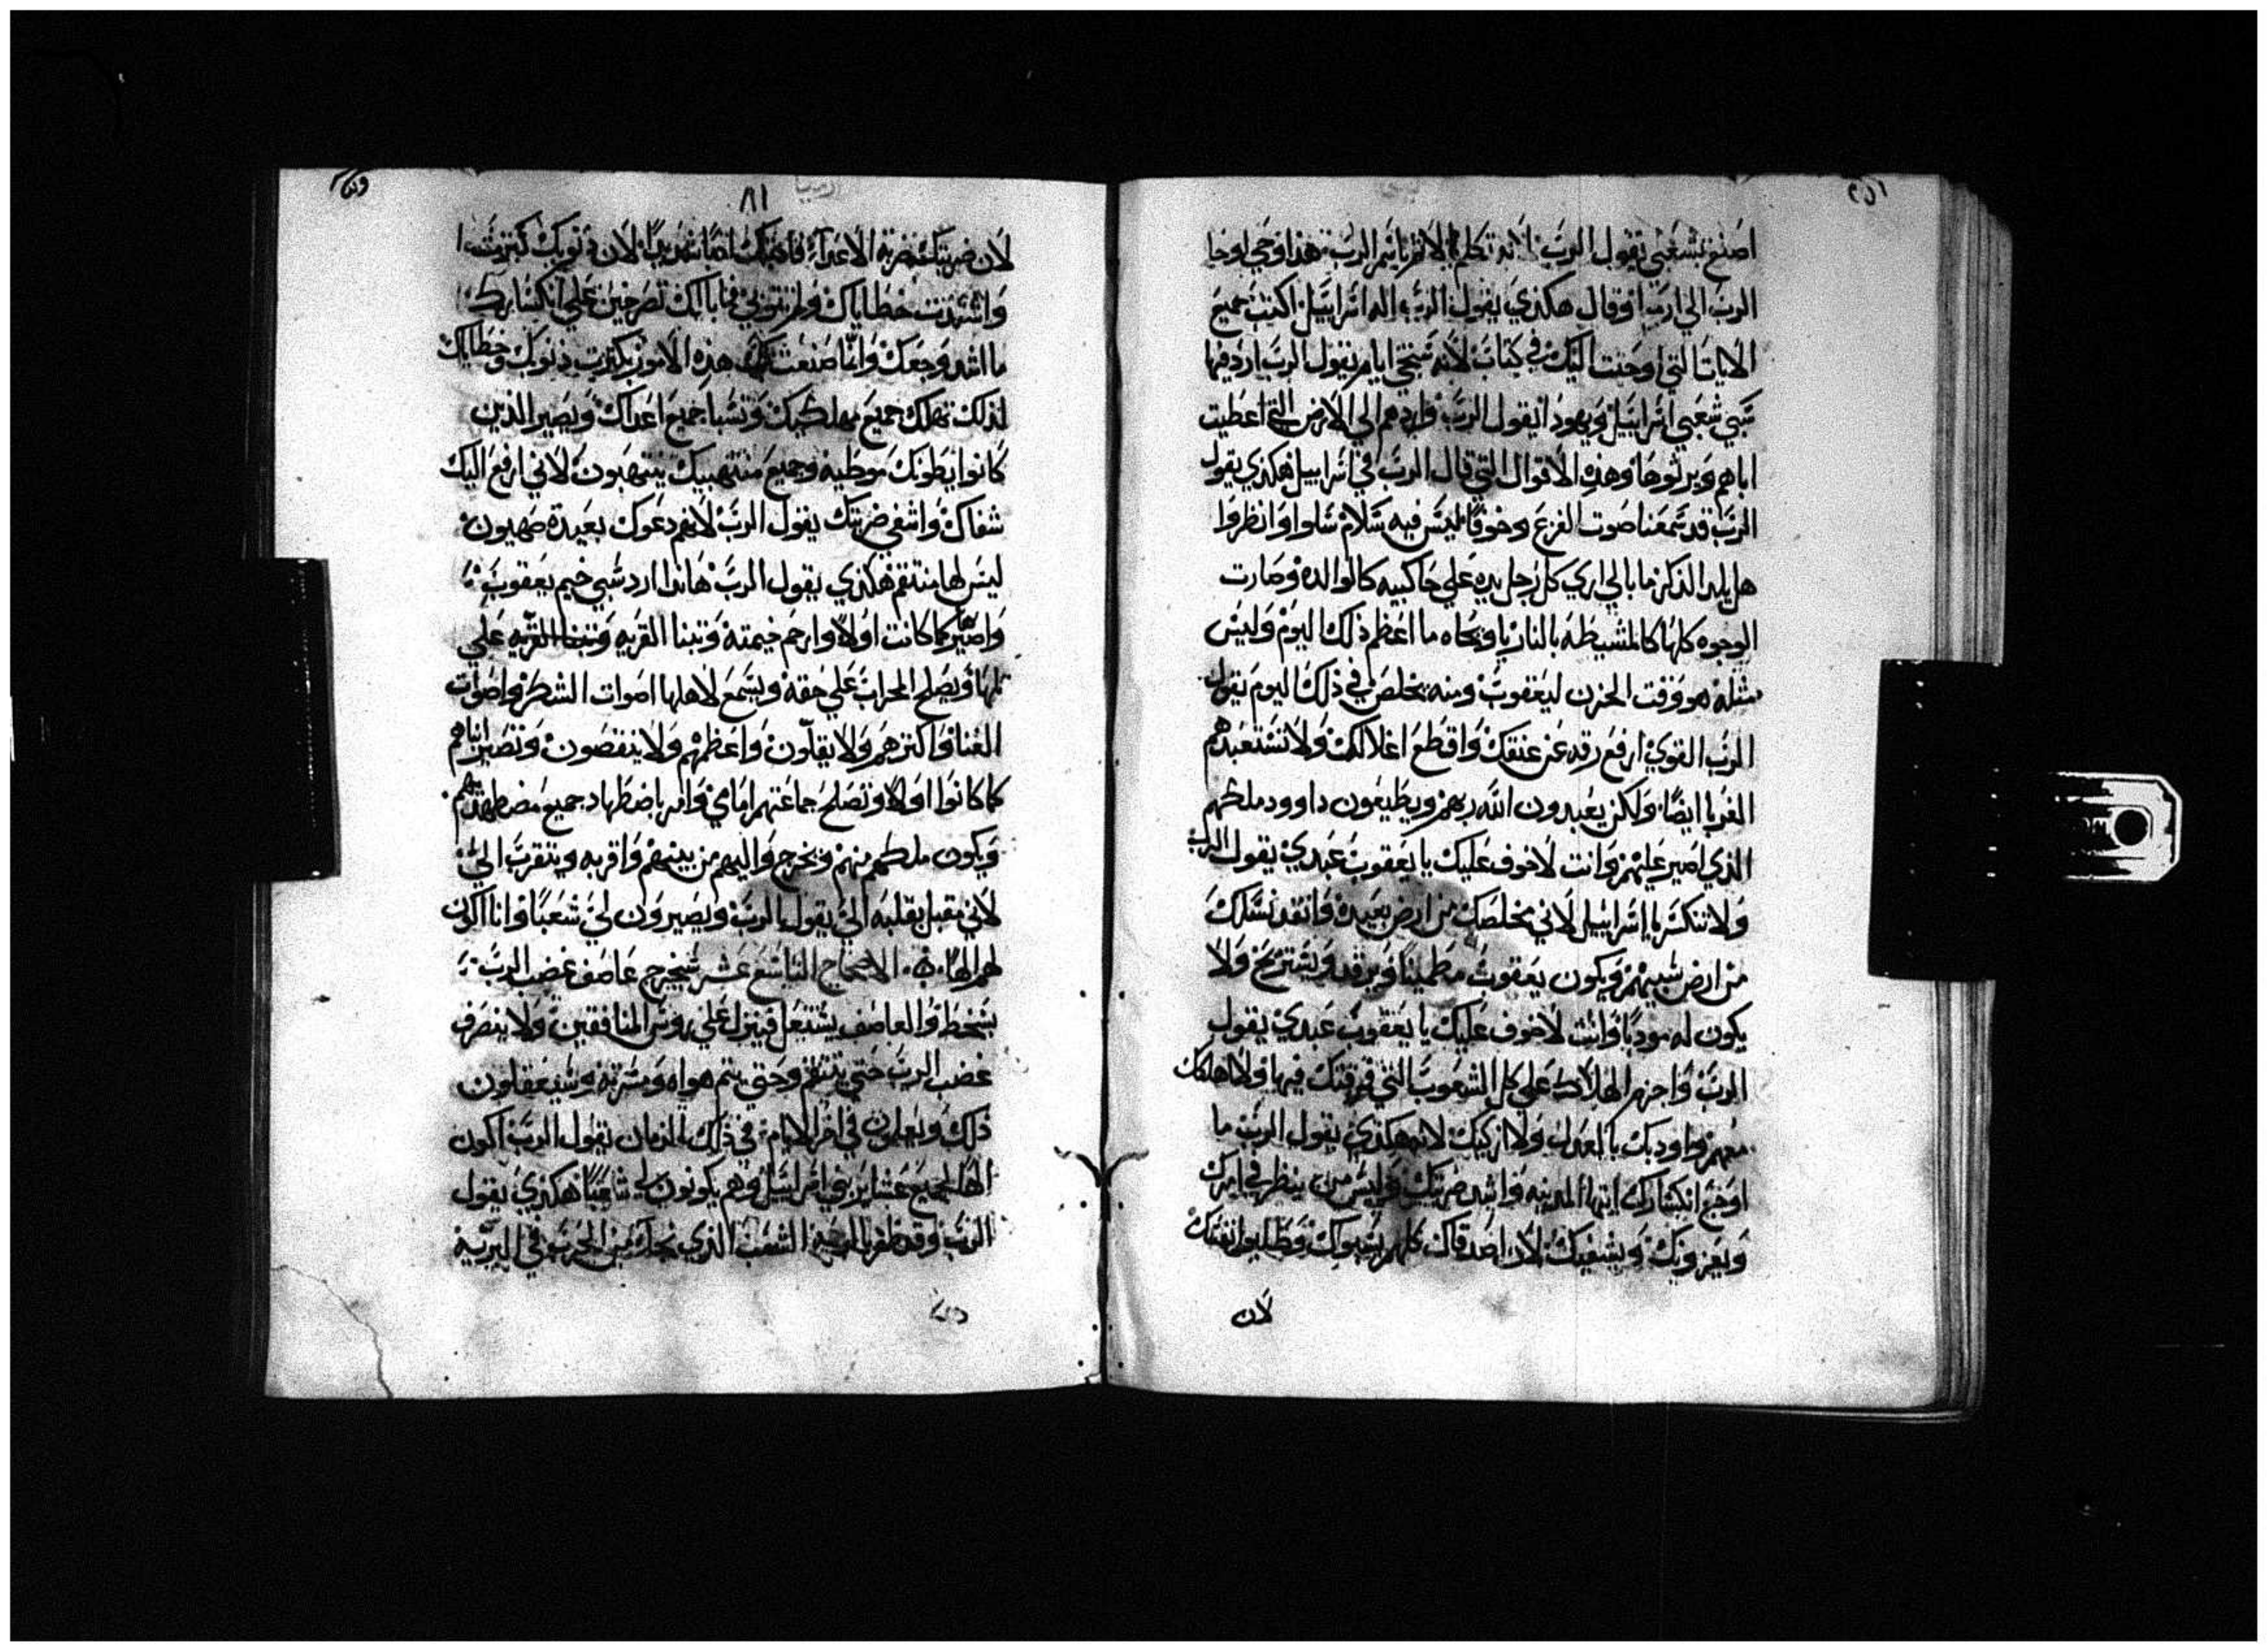 اصنع بشعبي يقول الرب لانه تكلم بالاثم باسم الرب هذا وحي اوحا
الرب الي ارميا وقال هكذي يقول الرب اله اسراييل اكتب جميع
الايات التي اوحيت اليك في كتاب لانه ستجي ايام يقول الرب ارد فيها
سبي شعبي اسراييل ويهودا يقول الرب واردهم الي الارض التي اعطيت
اباهم ويرثوها وهذه الاقوال التي قال الرب في اسراييل هكذي يقول
الرب قد سمعنا صوت الفزع وخوفا ليس فيه سلام سلوا وانظروا
هل يلد الذكر ما بالي اري كل رجل يده علي حاكبيه كالوالده وصارت
الوجوه كلها كالمشيطه بالنار يا ويحاه ما اعظم ذلك اليوم وليس
مثله هو وقت الحزن ليعقوب ومنه يخلص في ذلك اليوم يقول
الرب القوي ارفع رقه عن عنقك واقطع اغلالك ولا تستعبدهم
الغربا ايضا ولكن يعبدون الله ربهم ويطيعون داوود ملكهم
الذي اصير عليهم وانت لا خوف عليك يا يعقوب عبدي يقول الرب
ولا تنكسر يا اسراييل لاني مخلصك من ارض بعيدة وانقد نسلك
من ارض سبيهم ويكون يعقوب مطمينا ويرقد ويستريح ولا
يكون له موديا وانت لا خوف عليك يا يعقوب عبدي يقول
الرب واجزم الهلاك علي كل الشعوب التي فرقتك فيها ولا اهلكك
معهم واودبك بالعدل ولا ازكيك لانه هكذي يقول الرب ما
اوجع انكسارك ايتها المدينه واشد ضربتك وليس من ينظر في امرك
ويعزونك ويشفيك لان اصدقاك كلهم نسيوك وطلبوا نفسك
لان
٨١
لان ضربتك ضربة الاعدا فادبتك ادبا شديدا لان ذنوبك كثرت
واشتدت خطاياك ولم تتوبي فما بالك تصرخين علي انكسارك
ما اشد وجعك وانما صنعت بك هذه الامور بكثرت ذنوبك وخطاياك
لذلك تهلك جميع مهلكيك وتسبا جميع اعداك ويصير الذين
كانوا يطونك موطيه وجميع منتهبيك ينتهبون لاني ارفع اليك
شفاك واشفي ضربتك يقول الرب لانهم دعوك بعيدة صهيون
ليس لها منتقم هكذي يقول الرب هاندا ارد سبي خيم يعقوب
واصير كما كانت اولا وارحم خيمته وتبنا القريه وتبنا القريه علي
تلها ويصلح المحراب علي حقه ويسمع لاهلها اصوات الشكر واصوات
الغنا واكثرهم ولا يقلون واعظمهم ولا ينقصون وتصير ابناهم
كما كانوا اولا وتصلح جماعتهم امامي وامر باضطهاد جميع مضطهديهم
ويكون ملكهم منهم ويخرج واليهم من بينهم واقربه ويتقرب الي
لاني مقبل بقلبه الي يقول الرب ويصيرون لي شعبا وانا اكون
لهم الها الاصحاح التاسع عشر سيخرج عاصف غضب الرب
بسخط والعاصف يشتعل فينزل علي روس المنافقين ولا ينصرف
غضب الرب حتي ينتقم وحتي يتم هواه ومسرته وستعقلون
ذلك وتعلمون في اخر الايام في ذلك الزمان يقول الرب اكون
الها لجميع عشاير بني اسراييل وهم يكونون لي شعبا هكذي يقول
الرب وقد ظفر بالرحمه الشعب الذي نجاك من الحرب في البريه